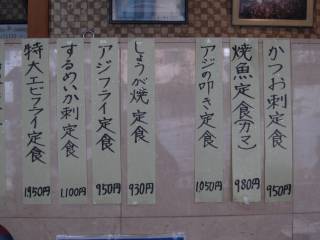 かつお刺定食 950円
焼魚定食(カマ) 980円
アジの叩き定食 1,050円
しょうが焼定食 930円
アジフライ定食 950円
するめいか刺定食 1,100円
特大エビフライ定食 1,950円